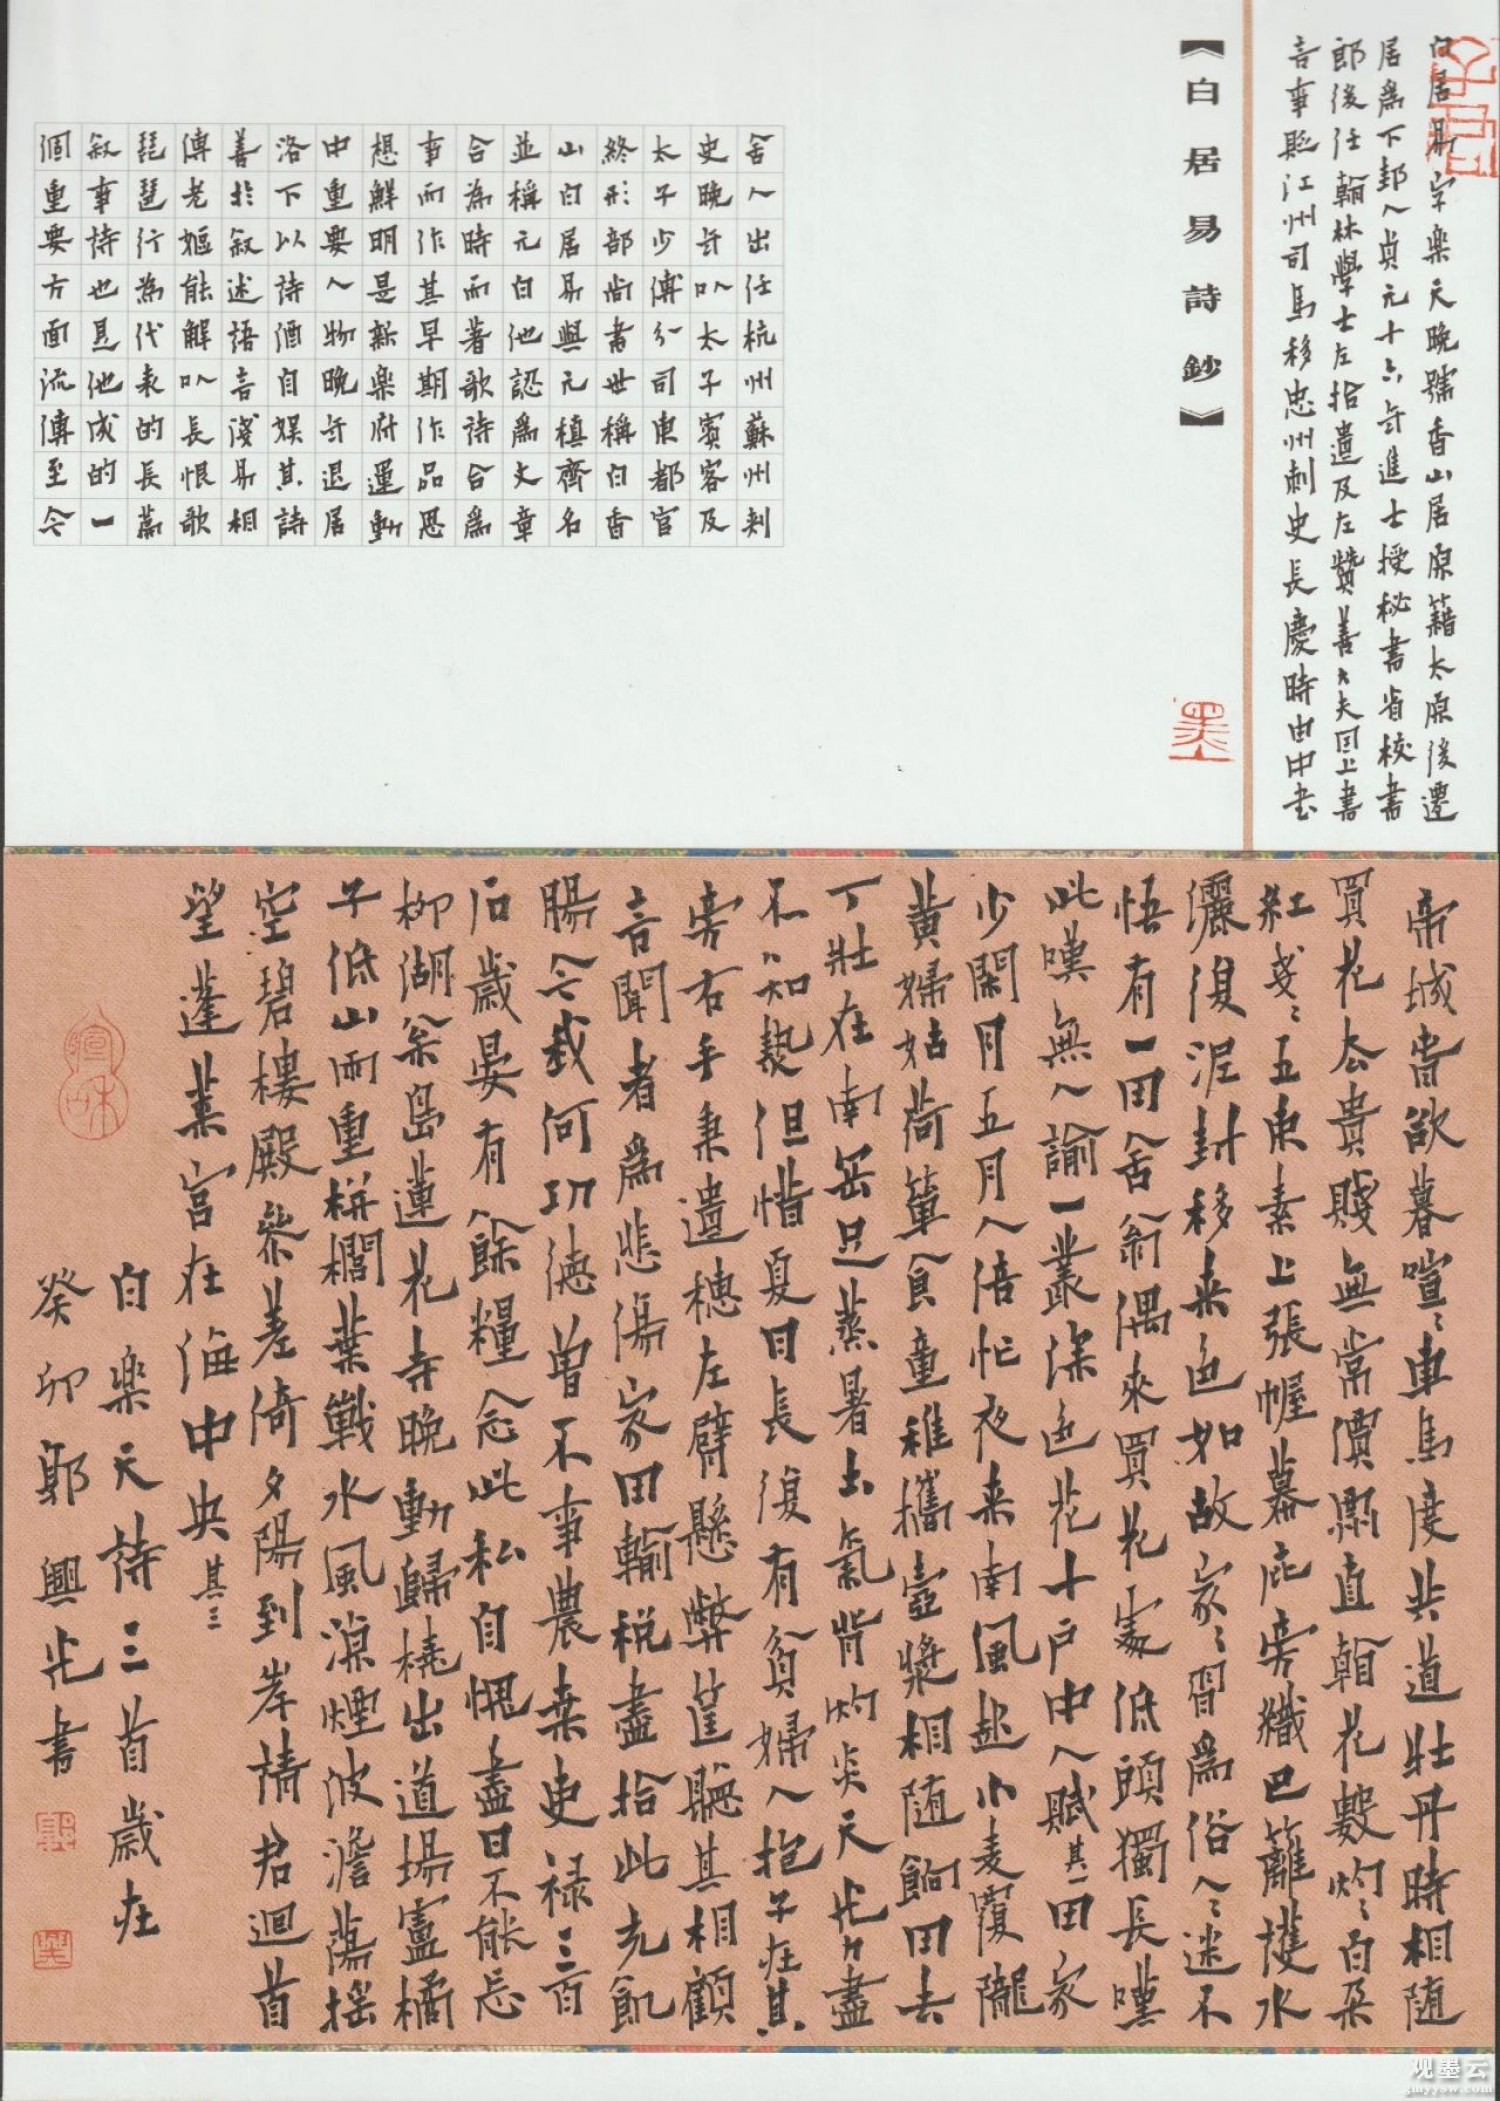 白居易字樂天晚號香山居原籍太原後遷
居爲下邽人貞元十六年進士授秘書省校書
郎後任翰林學士左拾遺及左贊善大夫因上書
言事貶江州司馬移忠州刺史長慶時由中書
【白居易詩鈔】
舍人出任杭州蘇州刺
史晚年以太子賓客及
太子少傅分司東都官
終刑部尚書世稱白香
山白居易與元稹齊名
並稱元白他認爲文章
合為時而著歌詩合爲
事而作其早期作品思
想鮮明是新樂府運動
中重要人物晚年退居
洛下以詩酒自娱其詩
善於叙述語言淺易相
傳老嫗能解以長恨歌
琵琶行為代表的長篇
叙事詩也是他成的一
個重要方面流傳至今
帝城春欲暮喧〻車馬度共道牡丹時相随
買花去貴賤無常價酬直賴花數灼〻百朵
紅戔〻五束素上張幄幕庇旁織巴籬護水
灑復泥封移来色如故家〻習爲俗人〻迷不
悟有一田舍翁偶來買花處低頭獨長嘆
此嘆無人諭一叢深色花十户中人賦其一田家
少閑月五月人倍忙夜来南風起小麦覆隴
黄婦姑荷簞食童稚攜壺漿相随餉田去
丁壯在南岳足蒸暑土氣背灼炎天光力盡
不知熱但惜夏日長復有貧婦人抱子在其
旁右手秉遺穗左臂懸弊筐聽其相顧
言聞者爲悲傷家田輸税盡拾此充飢
腸今我何功德曾不事農桑吏禄三百
石歲晏有餘糧念此私自愧盡日不能忘
柳湖松島蓮花寺晚動歸橈出道場盧橘
子低山雨重栟櫚葉戰水風凉煙波澹蕩摇
空碧樓殿參差倚夕陽到岸請君迴首
望蓬萊宫在海中央其三
白樂天詩三首歲在
癸卯鄭興光書
观墨云
gmyysw.com